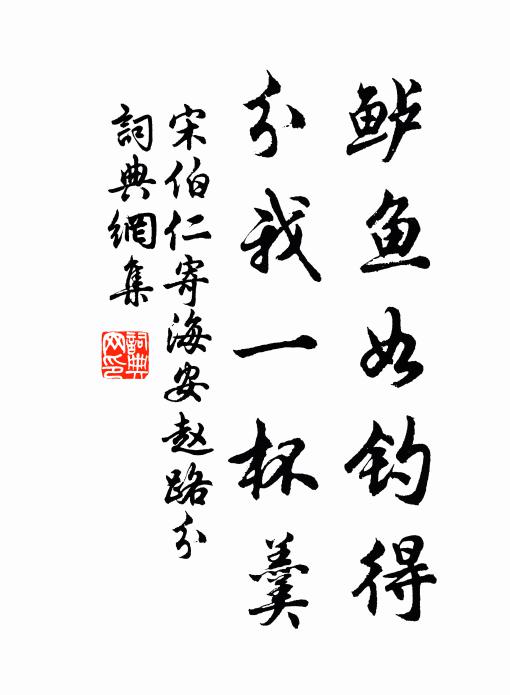 鲈鱼如钓得
分我一杯羹
宋伯仁寄海安赵路分
詞典網集
詞典
网印